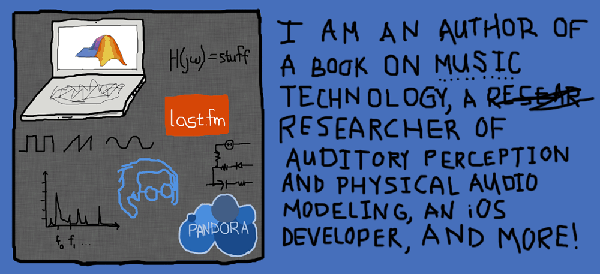 H(jω)=stuff
last.fm
f₀ f₁...
PANDORA
I AM AN AUTHOR OF
A BOOK ON MUSIC
TECHNOLOGY, A RESEAR
RESEARCHER OF
AUDITORY PERCEPTION
AND PHYSICAL AUDIO
MODELING, AN iOS
DEVELOPER, AND MORE!